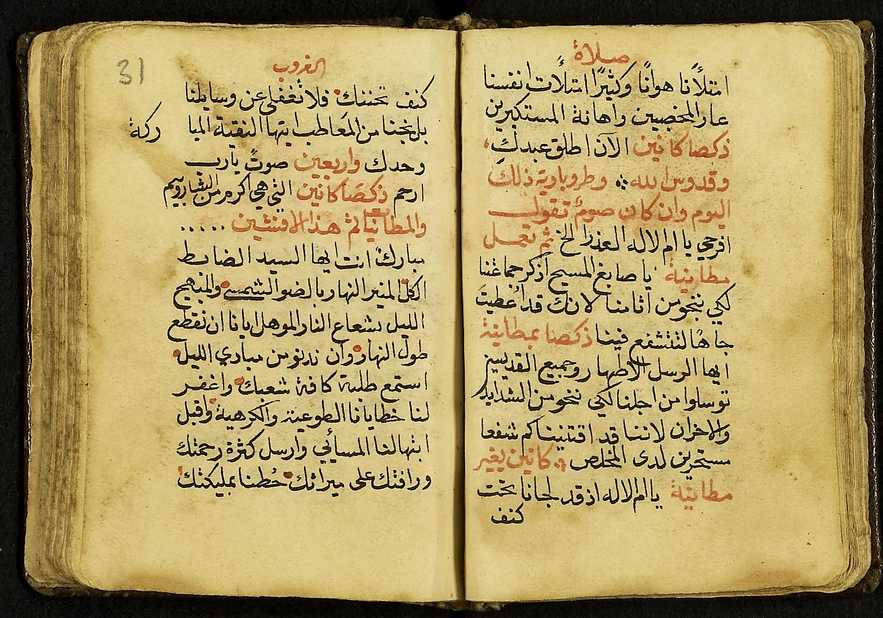 صلاة
امتلأنا هوانًا وكثيرًا امتلأت انفسنا
عار المخصبين واهانة المستكبرين
ذكصا كانين الآن اطلق عبدك
وقدوس الله وطروبارية ذلك
اليوم وان كان صوم تقول
افرحي يا ام الاله العذرا الخ ثم تعمل
مطانية يا صابغ المسيح اذكر جماعتنا
لكي ننجو من آثامنا لانك قد اُعطيت
جاهًا لتتشفع فينا ذكصا بمطانية
ايها الرسل الاطهار وجميع القديسين
توسلوا من اجلنا لكي ننجو من الشدايد
والاحزان لاننا قد اقتنيناكم شفعا
مستحرين لدى المخلص كانين بغير
مطانية يا ام الاله اذ قد لجانا تحت
كنف
الغروب
31
كنف تحننك فلا تغفلي عن وسايلنا
بل نجينا من المعاطب ايتها النقية المباركة
وحدك واربعين صوت يارب
ارحم ذكصا كانين التي هي اكرم من الشاروبيم
والمطانيا ثم هذا الافشين
مبارك انت ايها السيد الضابط
الكل المنير النهار بالضو الشمسي والمبهج
الليل بشعاع النار الموهل ايانا ان نقطع
طول النهار وان ندنو من مبادي الليل
استمع طلبة كافة شعبك واغفر
لنا خطايانا الطوعية والكرهية واقبل
ابتهالنا المسائي وارسل كثرة رحمتك
ورافتك على ميراثك حُطنا بمليكتك